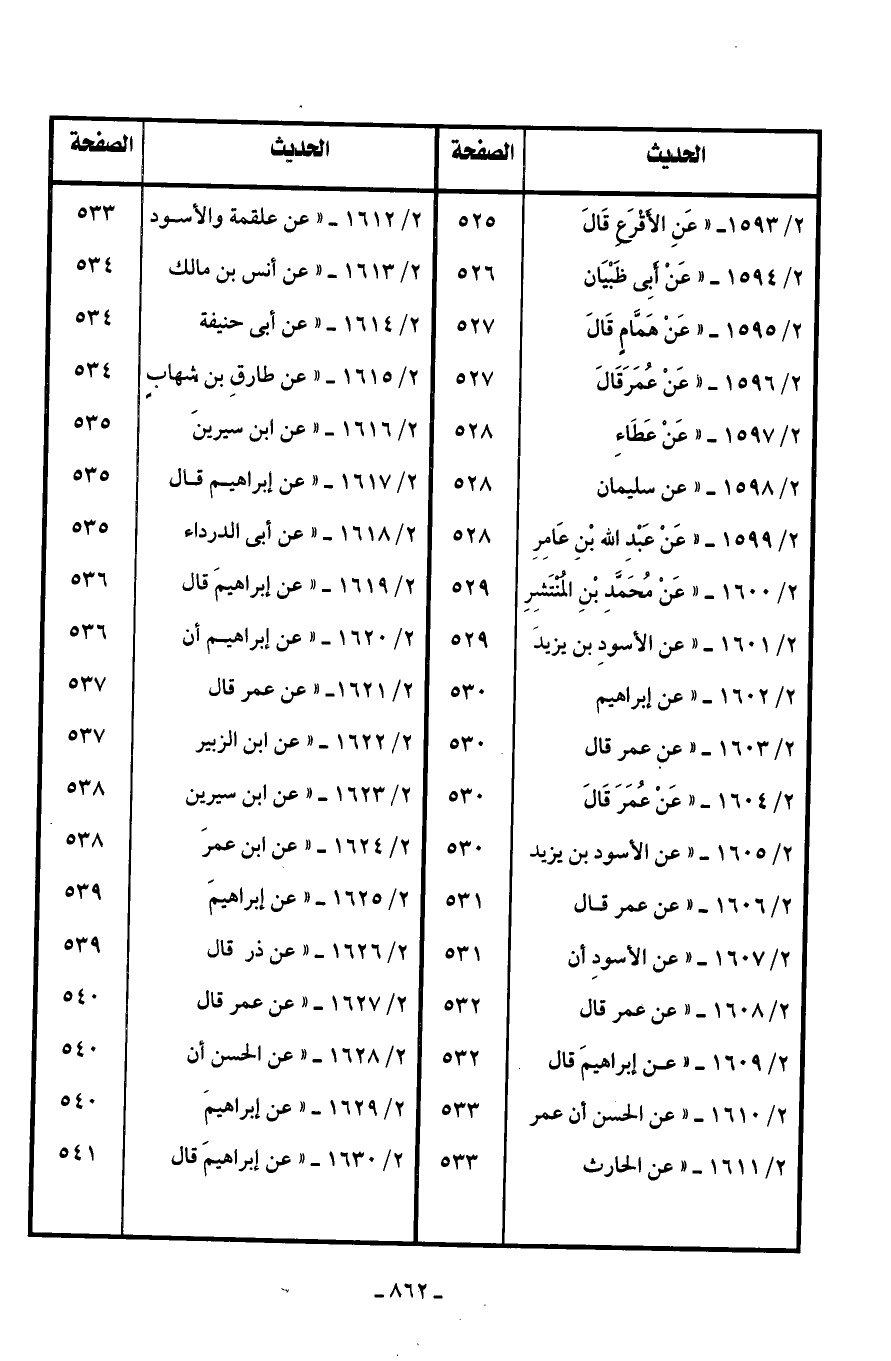 الحديث الصفحة الحديث الصفحة
٢/ ١٥٩٣ـ « عَنِ الأَقْرَعِ قَالَ ٥٢٥
٢/ ١٥٩٤ ـ « عَنْ أَبِى ظَبْيَان ٥٢٦
٢/ ١٥٩٥ ـ « عَنْ هَمَّامٍ قَالَ ٥٢٧
٢/ ١٥٩٦ ـ « عَنْ عُمَرَ قَالَ ٥٢٧
٢/ ١٥٩٧ ـ « عَنْ عَطَاءِ ٥٢٨
٢/ ١٥٩٨ ـ « عن سليمان ٥٢٨
٢/ ١٥٩٩ ـ « عَنْ عَبْدِ الله بْنِ عَامِرِ ٥٢٨
٢/ ١٦٠٠ ـ « عَنْ مُحَمَّدِ بْنِ المُنْتَشِرِ ٥٢٩
٢/ ١٦٠١ ـ « عن الأسودِ بن يزيدَ ٥٢٩
٢/ ١٦٠٢ ـ « عن إبراهيم ٥٣٠
٢/ ١٦٠٣ ـ « عن عمر قال ٥٣٠
٢/ ١٦٠٤ ـ « عَنْ عُمَرَ قَالَ ٥٣٠
٢/ ١٦٠٥ ـ « عن الأسود بن يزيد ٥٣٠
٢/ ١٦٠٦ ـ « عن عمر قـال ٥٣١
٢/ ١٦٠٧ ـ « عن الأسودِ أن ٥٣١
٢/ ١٦٠٨ ـ « عن عمر قال ٥٣٢
٢/ ١٦٠٩ ـ « عـن إبراهيمَ قال ٥٣٢
٢/ ١٦١٠ ـ « عن الحسن أن عمر ٥٣٣
٢/ ١٦١١ ـ « عن الحارث ٥٣٣
٢/ ١٦١٢ ـ « عن علقمة والأسـود ٥٣٣
٢/ ١٦١٣ ـ « عن أنس بن مالك ٥٣٤
٢/ ١٦١٤ ـ « عن أبى حنيفة ٥٣٤
٢/ ١٦١٥ ـ « عن طارقِ بن شهابٍ ٥٣٤
٢/ ١٦١٦ ـ « عن ابن سيرينَ ٥٣٥
٢/ ١٦١٧ ـ « عن إبراهيـم قـال ٥٣٥
٢/ ١٦١٨ ـ « عن أبى الدرداء ٥٣٥
٢/ ١٦١٩ ـ « عن إبراهيمَ قال ٥٣٦
٢/ ١٦٢٠ ـ « عن إبراهيـم أن ٥٣٦
٢/ ١٦٢١ـ « عن عمر قال ٥٣٧
٢/ ١٦٢٢ ـ « عن ابن الزبير ٥٣٧
٢/ ١٦٢٣ ـ « عن ابن سيرين ٥٣٨
٢/ ١٦٢٤ ـ « عن ابن عمرَ ٥٣٨
٢/ ١٦٢٥ ـ « عن إبراهيمَ ٥٣٩
٢/ ١٦٢٦ ـ « عن ذر قال ٥٣٩
٢/ ١٦٢٧ ـ « عن عمر قال ٥٤٠
٢/ ١٦٢٨ ـ « عن الحسن أن ٥٤٠
٢/ ١٦٢٩ ـ « عن إبراهيمَ ٥٤٠
٢/ ١٦٣٠ ـ « عن إبراهيمَ قال ٥٤١
ـ ٨٦٢ ـ